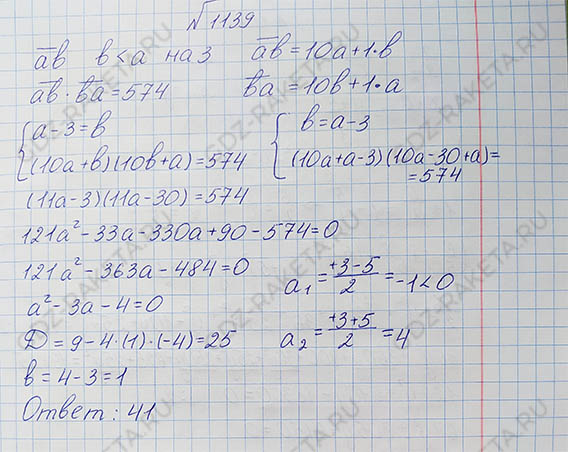 √1139
ab̅ b<a на 3 ab̅ = 10a + 1·b
ab̅ · ba̅ = 574 ba̅ = 10b + 1·a
{a - 3 = b {b = a - 3
(10a + b)(10b + a) = 574 (10a + a - 3)(10a - 30 + a) =
= 574
(11a - 3)(11a - 30) = 574
121a² - 33a - 330a + 90 - 574 = 0
121a² - 363a - 484 = 0 a₁ = +3-5/2 = -1 < 0
a² - 3a - 4 = 0
D = 9 - 4·(1)·(-4) = 25 a₂ = +3+5/2 = 4
b = 4 - 3 = 1
Ответ: 41
GDZ-RAKETA.RU